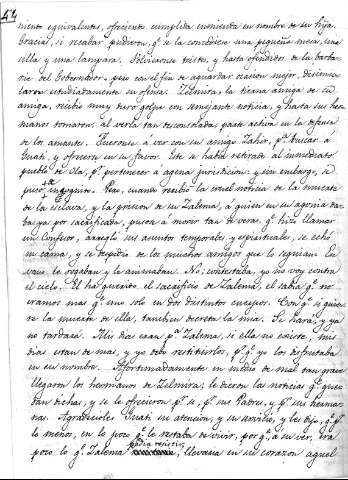 42
niento equivalentes, ofreciendo cumplida enmienda en nombre de su hija.
Gracias, si recabar pudieron, q.e se la concediese una pequeña mesa, una
silla y una lampara. Volvieronse tristes, y hasta ofendidos de la barba-
rie del Gobernador, pero con el fin de aguardar ocasion mejor, disimu-
laron estudiadamente su ofensa. Zelmira, la tierna amiga de su
amiga, recibio muy duro golpe con semejante noticia, y hasta sus her-
manos tomaron al verla tan desconsolada, parte activa en la defensa
de los amantes. Fueronse á ver con su amigo Zahir, p.a buscar á
Guati, y ofrecerse en su favor. Este se habia retirado al inmediato
pueblo de Ola, p.r pertenecer á agena jurisdiccion: y sin embargo, se
puso de incognito. Mas, cuando recibió la cruel noticia de la muerte
de la esclava, y la posicion de su Zalema, á quien en su agonia da-
ba ya por sacrificada, pusose á morir tan de veras, q.e hizo llamar
un Confesor, arregló sus asuntos temporales y espirituales, se echó
en cama, y se despidio de los muchos amigos que le seguian. En
vano le rogaban y le animaban. No; contestaba, yo no voy contra
el cielo. El ha querido el sacrificio de Zalema, él sabia q.e no
eramos mas q.e uno solo en dos distintos cuerpos. Con q.e si quiere
de la muerte de ella, tambien decreta la mia. Se hará, y ya
no tardará. Mis dias eran p.a Zalema, si ella no existe, mis
dias estan de mas, y yo debo restituirlos, p.r q.e yo los disfrutaba
en su nombre. Afortunadamente en medio de mal tan grave
llegaron los hermanos de Zelmira; le dieron las noticias q.e que-
dan dichas, y se le ofrecieron p.r sí, p.r sus Padres, y p.r su herma-
na. Agradecioles Guati su atencion, y su servicio, y les dijo, q.e p.r
lo menos, en lo poco q.e le restaba de vivir, por q.e, á su ver, era
poco lo q.e Zalema podia resistir, llevaria en su corazon aquel